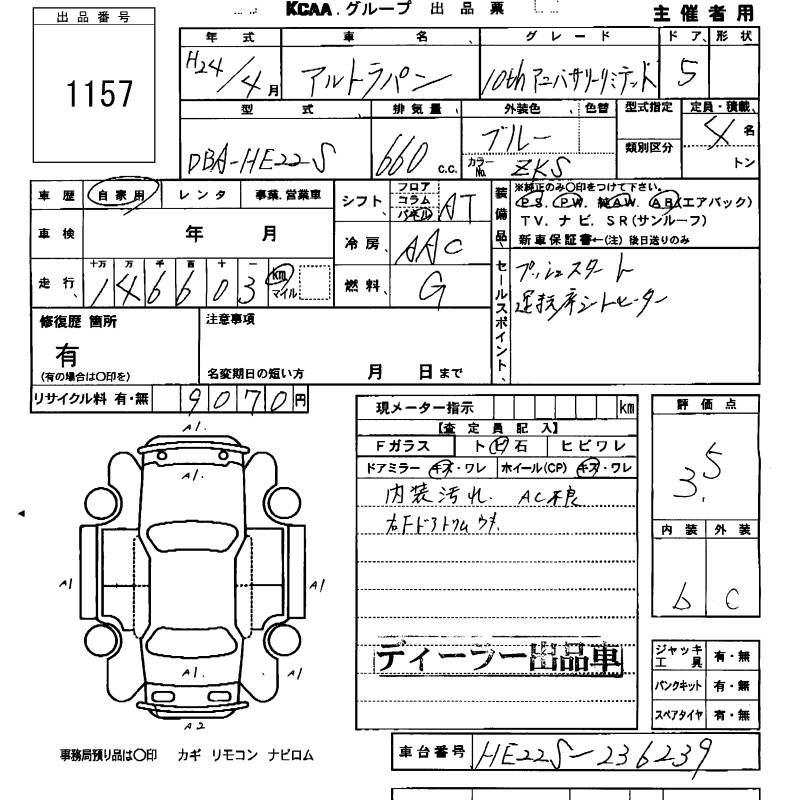 KCAA.グループ 出品票
主催者用
出品番号
1157
年式 車名 グレード ドア、形状
H24/4月 アルトラパン 10th アニバサリーリミテッド 5
型式 排気量、 外装色 色替 型式指定 定員・積載、
DBA-HE22S 660 c.c. ブルー カラーNo. ZKS 類別区分 4名 トン
車歴 自家用 レンタ 事業.営業車
シフト フロア コラム パネル AT
装備品、
※純正のみ〇印をつけて下さい。
P.S. P.W. 純A.W. A.B(エアバック)
T.V. ナビ. S R (サンルーフ)
新車保証書←(注) 後日送りのみ
車検 年 月
冷房 AAC
走行、 十万 万 千 百 十 一
146603 km マイル
燃料、 G
セールスポイント、
プッシュスタート
運転席シートヒーター
修復歴 箇所
有
(有の場合は〇印を)
注意事項
名変期日の短い方 月 日まで
リサイクル料 有・無 9070円
現メーター指示 km
【査定員記入】
Fガラス ト ビ 石 ヒビワレ
ドアミラー キズ・ワレ ホイール(CP) キズ・ワレ
内装汚れ. AC不良
右Fドアトリムウキ.
評価点
3.5
内装 外装
b C
A1.
A1.
A1
A1
A1.
A1
A2
ディーラー出品車
ジャッキ工具 有・無
パンクキット 有・無
スペアタイヤ 有・無
事務局預り品は〇印 カギ リモコン ナビロム
車台番号 HE22S-236239